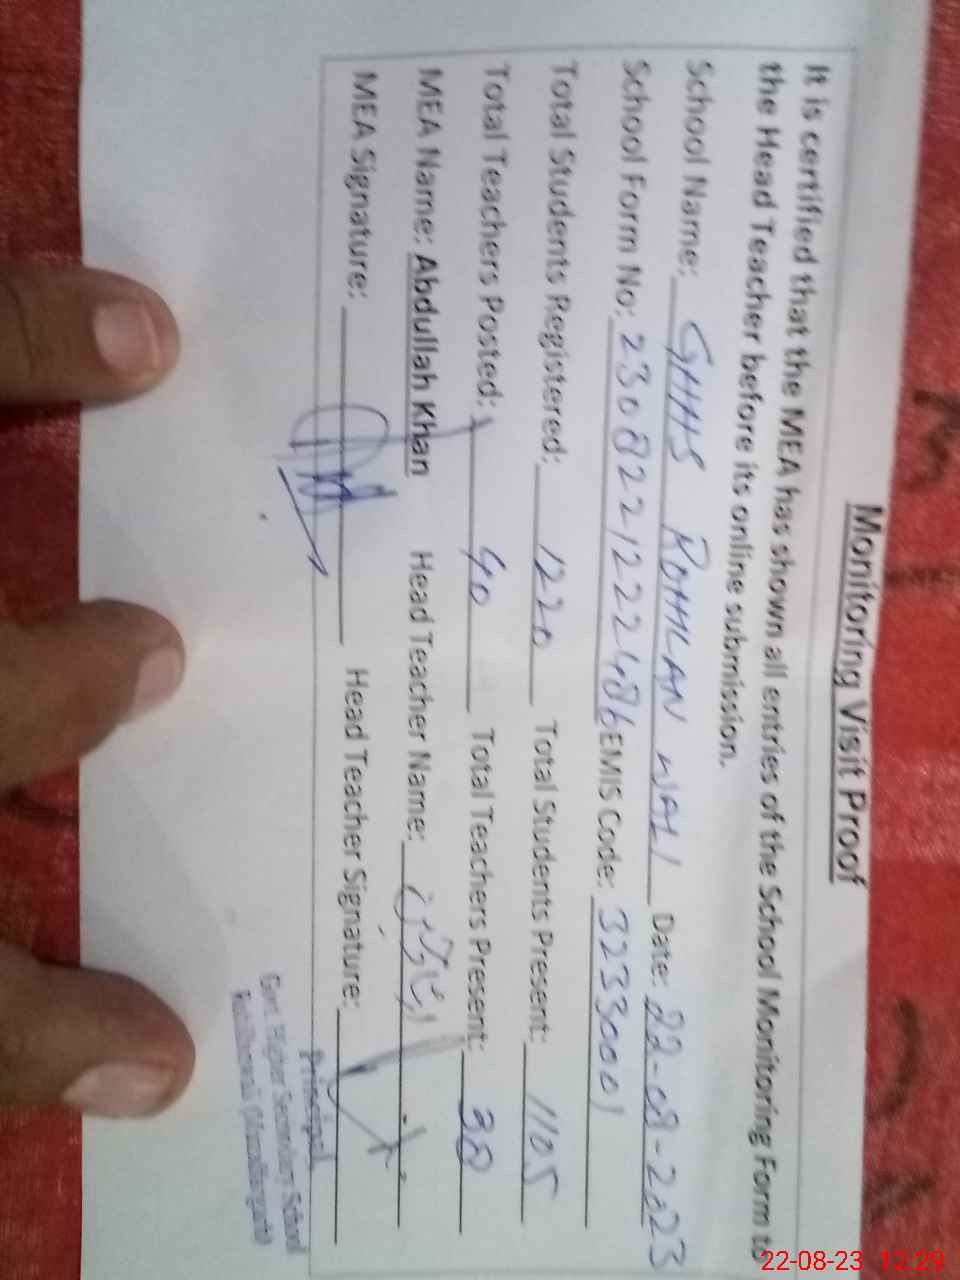 Monitoring Visit Proof
It is certified that the MEA has shown all entries of the School Monitoring Form to
the Head Teacher before its online submission.
School Name: GHHS ROHILAN WALI Date: 22-08-2023
School Form No: 23082212222486 EMIS Code: 32330001
Total Students Registered: 1220 Total Students Present: 1105
Total Teachers Posted: 40 Total Teachers Present: 38
MEA Name: Abdullah Khan Head Teacher Name:
MEA Signature: Head Teacher Signature:
Principal
Govt. Higher Secondary School
22-08-23 12:29